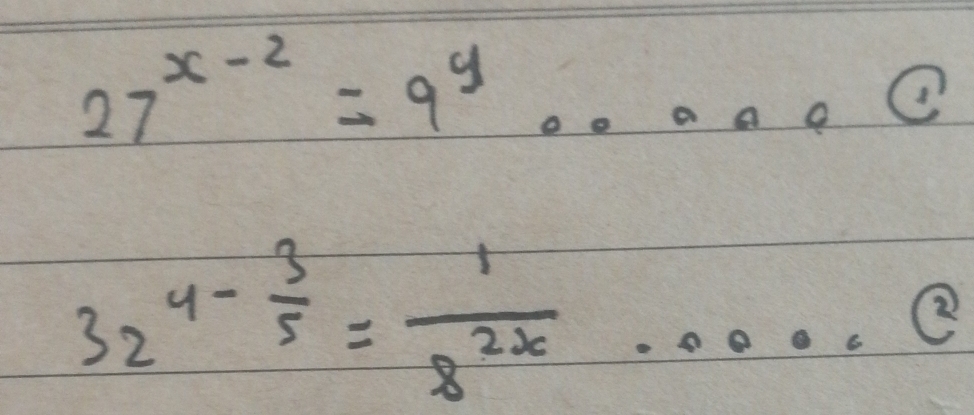 27^{x-2} = 9^{y} ..... ①
32^{y-\frac{3}{5}} = \frac{1}{8^{2x}} ..... ②